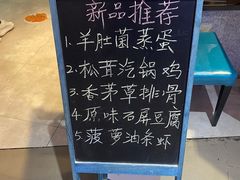 新品推荐
1.羊肚菌蒸蛋
2.松茸汽锅鸡
3.香茅草排骨
4.原味石屏豆腐
5.菠萝油条虾